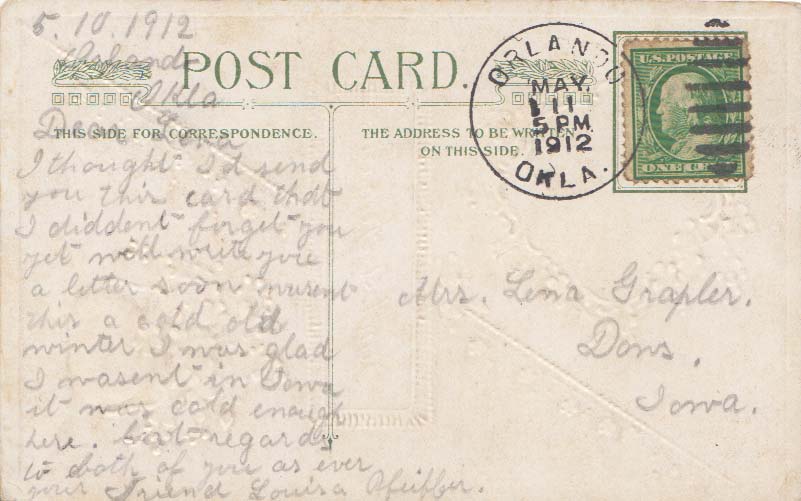 5. 10. 1912
Orlando
Okla
POST CARD.
THIS SIDE FOR CORRESPONDENCE.
THE ADDRESS TO BE WRITTEN
ON THIS SIDE.
ORLANDO
MAY
11
5 PM
1912
OKLA.
U.S. POSTAGE
ONE CENT
Dear Lena
I thought I'd send
you this card that
I diddent forget you
yet will write you
a letter soon wasent
this a cold old
winter I was glad
I wasent in Iowa
it was cold enough
here. best regards
to both of you as ever
your Friend Louisa Pfeiffer.
Mrs. Lena Grapler.
Dows,
Iowa.